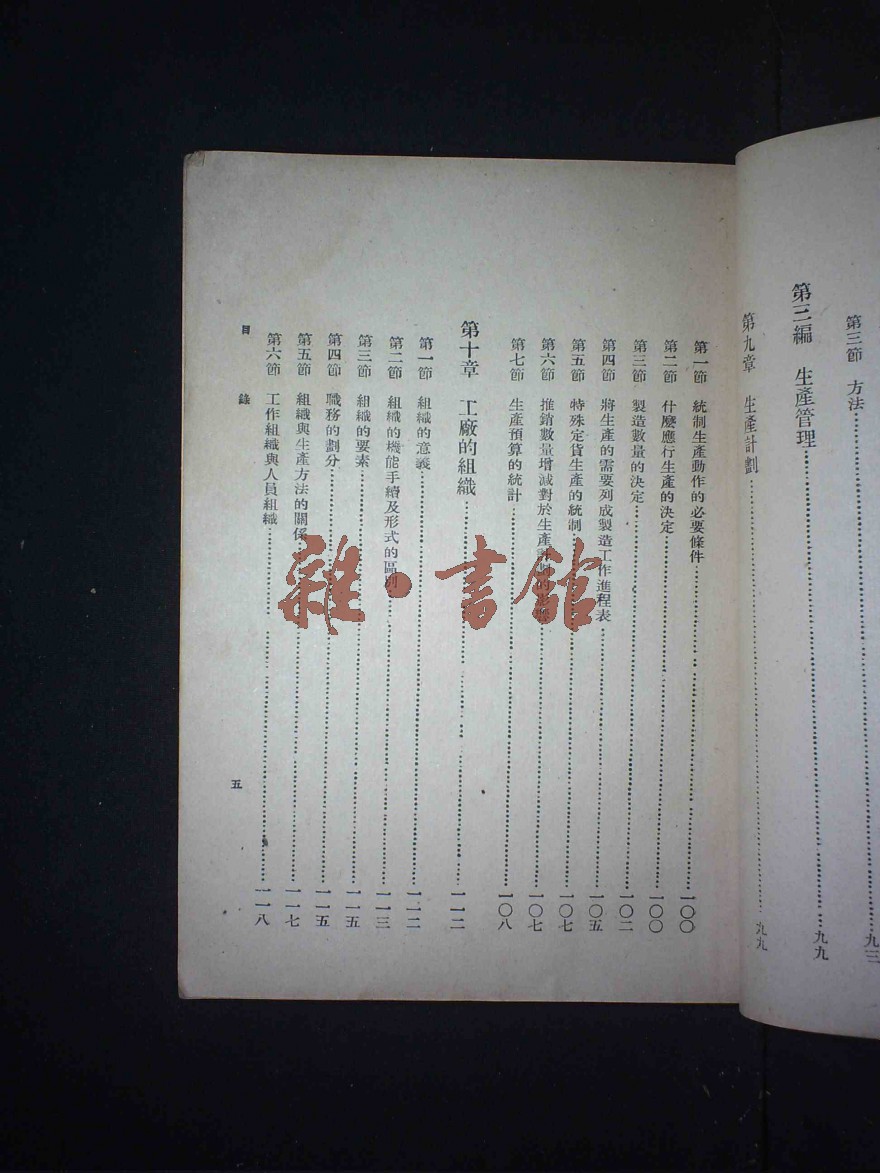 第三節 方法……九三
第三編 生產管理……九九
第九章 生產計劃……九九
第一節 統制生產動作的必要條件……一〇〇
第二節 什麼應行生產的決定……一〇〇
第三節 製造數量的決定……一〇二
第四節 將生產的需要列成製造工作進程表……一〇五
第五節 特殊定貨生產的統制……一〇七
第六節 推銷數量增減對於生產計劃的影響……一〇七
第七節 生產預算的統計……一〇八
第十章 工廠的組織……一一二
第一節 組織的意義……一一二
第二節 組織的機能手續及形式的區別……一一三
第三節 組織的要素……一一五
第四節 職務的劃分……一一五
第五節 組織與生產方法的關係……一一七
第六節 工作組織與人員組織……一一八
目錄 五
雜·書館